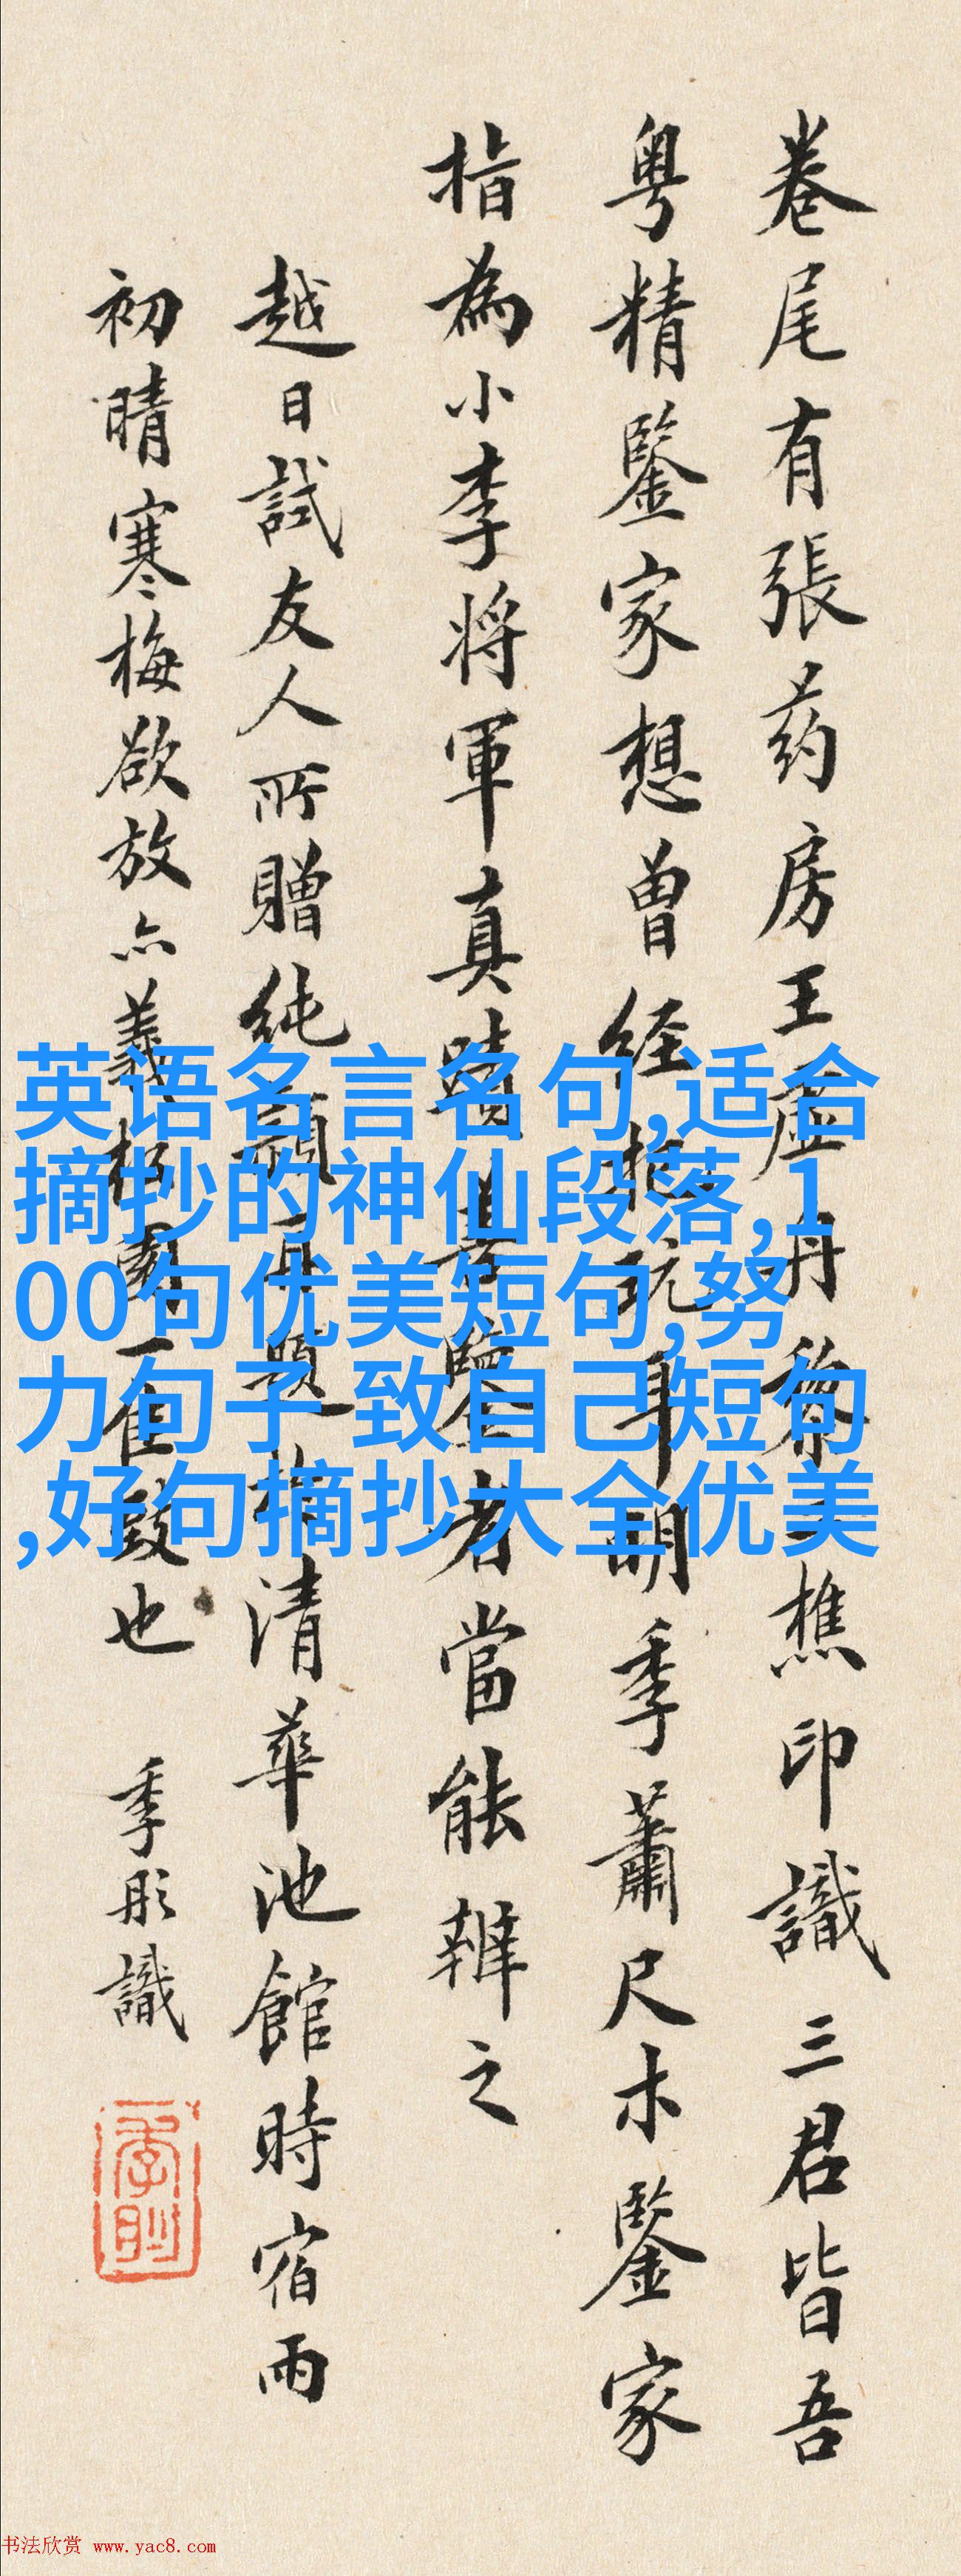 卷尾有張药房王虛舟黎樵印識三君皆吾
粤精鑒家想曾經玩耳明季蕭尺木鑒家
指為小李将軍真蹟善鑒者當能辨之
越日試友人所贈純再題清華池館時宿雨
初晴寒梅欲放亦義園一佳致也 季彤識
英语名言名句,适合
摘抄的神仙段落,1
00句优美短句,努
力句子 致自己短句
,好句摘抄大全优美
书法欣赏 www.yac8.com